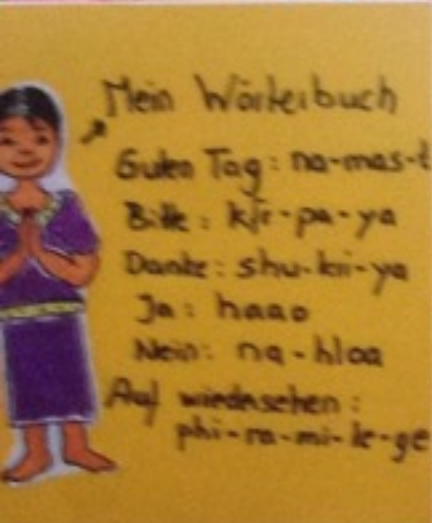 Mein Wörterbuch
Guten Tag: na-mas-t
Bitte: kir-pa-ya
Danke: shu-kri-ya
Ja: haao
Nein: na-hloa
Auf wiedersehen:
phi-ra-mi-le-ge